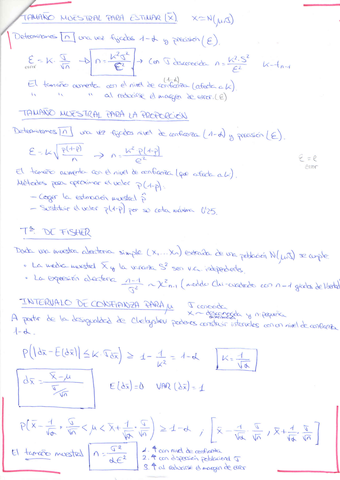 TAMAÑO MUESTRAL PARA ESTIMAR (x̄) x≡N(μ,σ)
Determinamos n una vez fijados 1-α y precisión (ε).
ε = K σ/√n → n = K²σ²/ε² → Con σ desconocida n = K²·S²/ε² K→tn-1
error
El tamaño aumenta con el nivel de confianza (afecta a K) (1-α)
" " " al reducirse el margen de error (ε)
TAMAÑO MUESTRAL PARA LA PROPORCION
Determinamos n una vez fijados nivel de confianza (1-α) y precisión (ε).
ε = K √(p(1-p)/n) → n = K² p(1-p)/ε²
error
El tamaño aumenta con el nivel de confianza (que afecta a K).
Métodos para aproximar el valor p(1-p).
- Coger la estimación muestral p̂
- Sustituir el valor p(1-p) por su cota máxima 0'25.
Tª DE FISHER
Dada una muestra aleatoria simple (x1 ... xn) extraída de una población N(μ,σ) se cumple
• La media muestral x̄ y la varianza S² son v.a. independientes.
• La expresión aleatoria n-1/σ² ~ χ²n-1 (modelo Chi-cuadrado con n-1 grados de libertad)
INTERVALO DE CONFIANZA PARA μ σ conocida
y n pequeña
A partir de la desigualdad de Chebyshev podemos construir intervalos con un nivel de confianza
1-α.
P(|dx̄ - E(dx̄)| ≤ K·σdx̄) ≥ 1 - 1/K² = 1-α K = 1/√α
dx̄ = x̄-μ / σ/√n E(dx̄)=0 VAR(dx̄)=1
P(x̄ - 1/√α · σ/√n < μ < x̄ + 1/√α · σ/√n) ≥ 1-α , [x̄ - 1/√α σ/√n , x̄ + 1/√α · σ/√n]
El tamaño muestral n = σ²/αε²
1. ↑ con nivel de confianza
2. ↑ con dispersión poblacional σ
3. ↑ al reducirse el margen de error